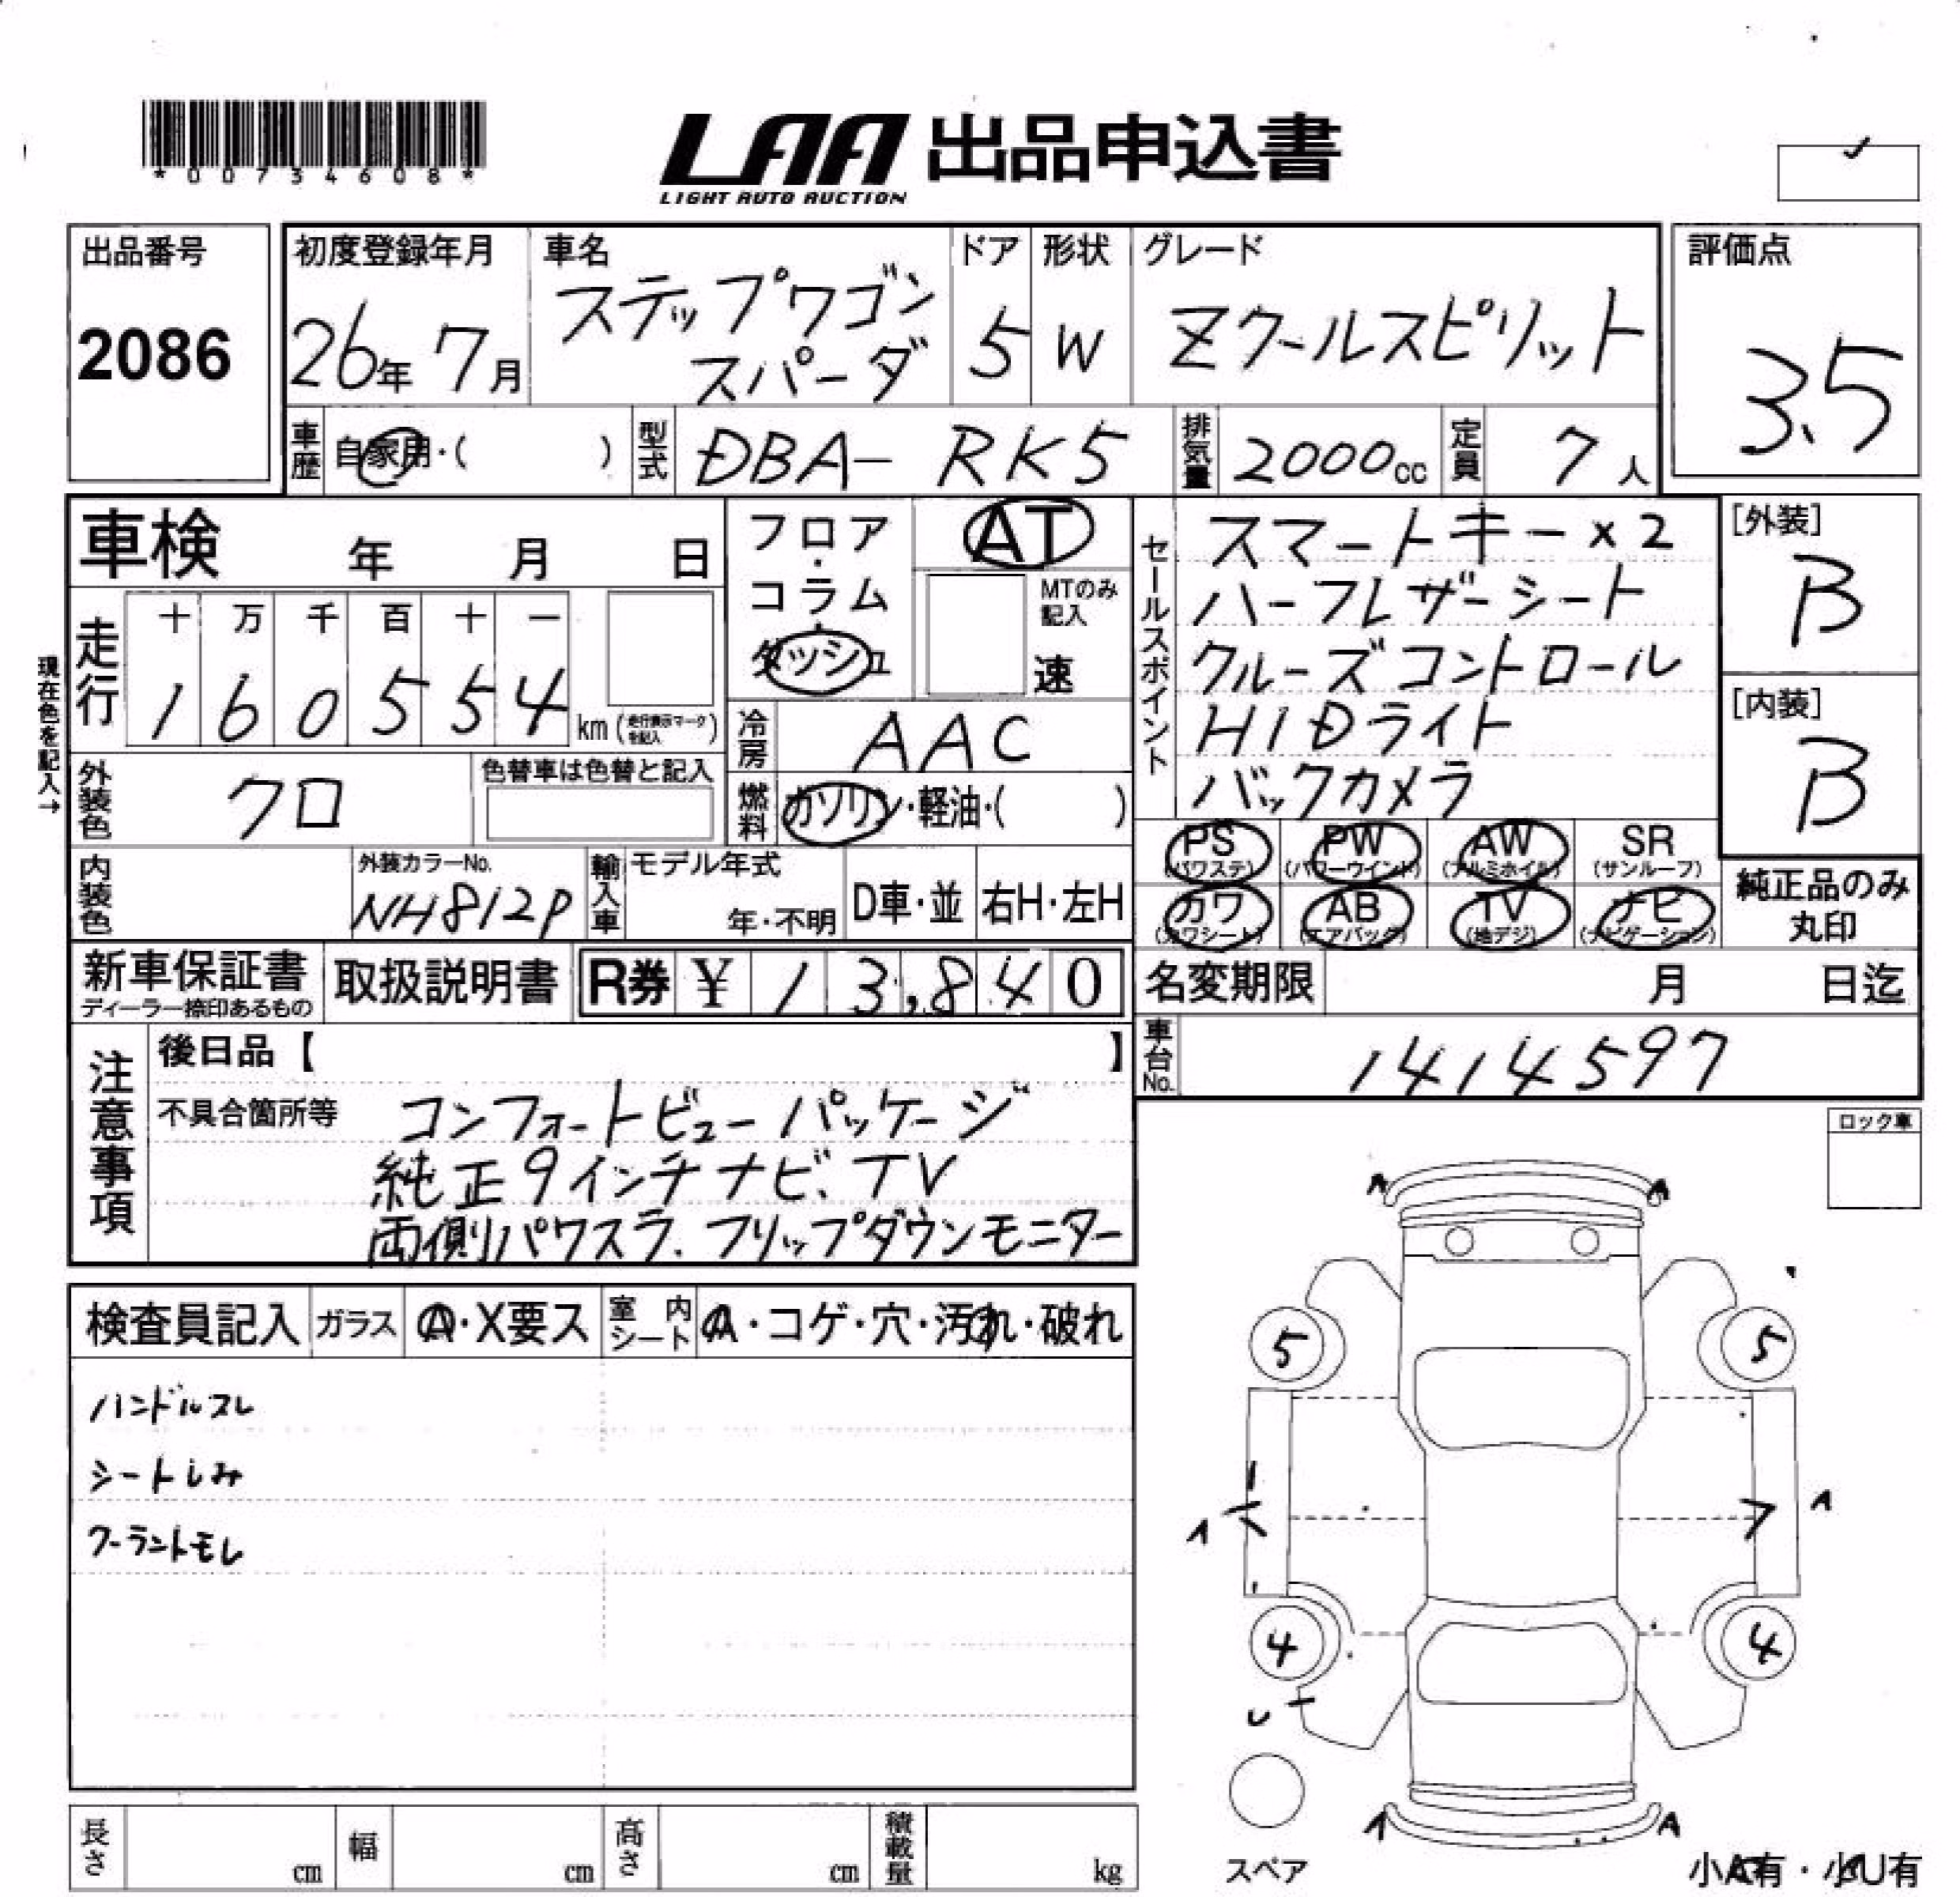 *00734608*
LAA 出品申込書
LIGHT AUTO AUCTION
出品番号
2086
初度登録年月
26年 7月
車名
ステップワゴン
スパーダ
ドア
5
形状
W
グレード
Zクールスピリット
評価点
3.5
車歴
自家用・( )
型式
DBA- RK5
排気量
2000cc
定員
7人
車検 年 月 日
現在色を記入→
走行
十 万 千 百 十 一
1 6 0 5 5 4
km (走行表示マークを記入)
フロア・コラム・ダッシュ
AT
MTのみ記入
速
冷房
AAC
燃料
ガソリン・軽油・( )
外装色
クロ
色替車は色替と記入
内装色
外装カラーNo.
NH812P
輸入車
モデル年式
年・不明
D車・並
右H・左H
セールスポイント
スマートキー×2
ハーフレザーシート
クルーズコントロール
HIDライト
バックカメラ
[外装]
B
[内装]
B
PS
(パワステ)
PW
(パワーウインド)
AW
(アルミホイル)
SR
(サンルーフ)
カワ
(カワシート)
AB
(エアバック)
TV
(地デジ)
ナビ
(ナビゲーション)
純正品のみ
丸印
新車保証書
ディーラー捺印あるもの
取扱説明書
R券 ¥ 13,840
名変期限 月 日迄
車台No.
1414597
注意事項
後日品【 】
不具合箇所等
コンフォートビューパッケージ
純正9インチナビ、TV
両側パワスラ、フリップダウンモニター
ロック車
検査員記入
ガラス
A・X要ス
室内シート
A・コゲ・穴・汚れ・破れ
ハンドルスレ
シートしみ
クーラントモレ
A A
5 5
A A
4 4
U
A A
スペア
小A有・小U有
長さ cm
幅 cm
高さ cm
積載量 kg